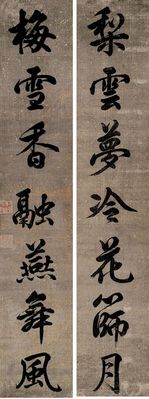 梨雲夢冷花篩月
梅雪香融燕舞風